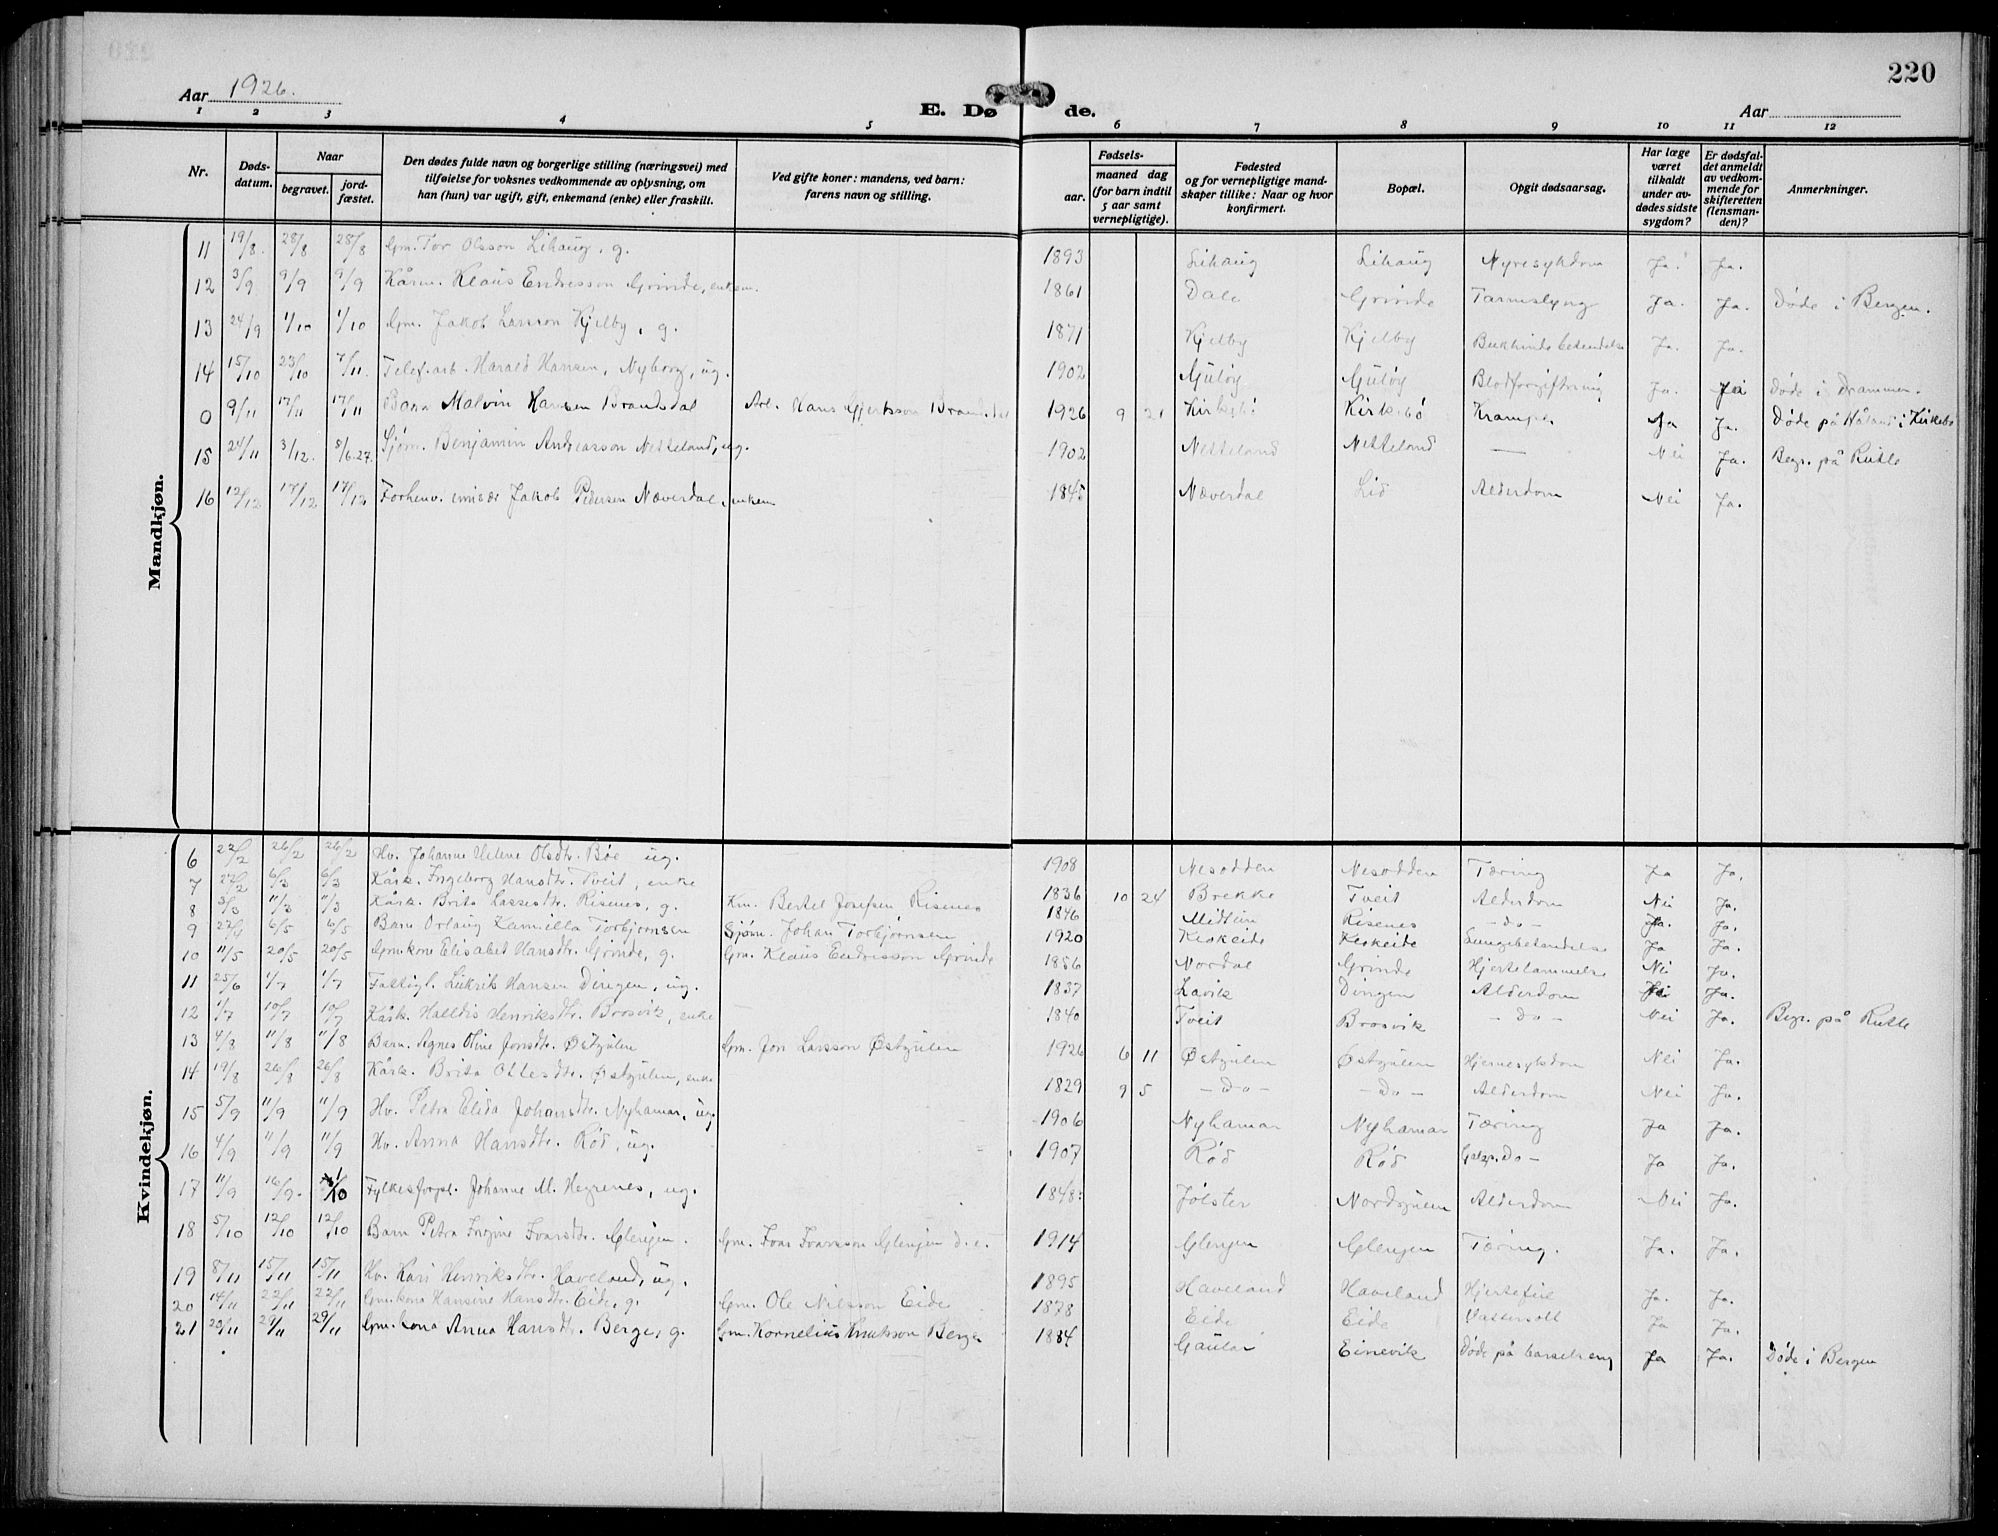 220
Aar 1926.
E. Dø de.
Aar
1 2 3 4 5 6 7 8 9 10 11 12
Nr. Døds-datum. Naar begravet. jord-fæstet. Den dødes fulde navn og borgerlige stilling (næringsvei) med tilføielse for voksnes vedkommende av oplysning, om han (hun) var ugift, gift, enkemand (enke) eller fraskilt. Ved gifte koner: mandens, ved barn: farens navn og stilling. Fødsels- aar. maaned dag (for barn indtil 5 aar samt vernepligtige). Fødested og for vernepligtige mand-skaper tillike: Naar og hvor konfirmert. Bopæl. Opgit dødsaarsag. Har læge været tilkaldt under av-dødes sidste sygdom? Er dødsfal-det anmeldt av vedkom-mende for skifteretten (lensman-den)? Anmerkninger.
Mandkjøn.
11 19/8. 28/8 28/8 Gm. Tor Olsson Lihaug, g. 1893 Lihaug Lihaug Nyresykdom Ja. Ja.
12 3/9 9/9 9/9 Kårm. Klaus Endresson Grinde, enkem. 1861 Dale Grinde Tarmslyng Ja. Ja. Døde i Bergen.
13 24/9 1/10 1/10 Gm. Jakob Larsson Kjelby, g. 1871 Kjelby Kjelby Bukhindebetendelse Ja. Ja.
14 15/10 23/10 7/11. Telef.arb. Harald Hansen, Nyborg, ug. 1902 Guløy Guløy Blodforgiftning Ja. Ja Døde i Drammen.
0 9/11 17/11 17/11 Barn Malvin Hansen Brandsdal Arb. Hans Gjertsson Brandsdal 1926 9 21 Kirkebø Kirkebø Krampe. Ja Ja. Døde på Håland i Kirkebø
15 24/11 3/12. 5/6.27. Sjøm. Benjamin Andreasson Netteland, ug. 1902 Netteland Netteland — Nei Ja. Begr. på Rutle
16 12/12 17/12 17/12 Forhenv. emissær Jakob Pedersen Næverdal, enkem 1845 Næverdal Lid Alderdom Nei Ja.
Kvindekjøn.
6 22/2 26/2 26/2 Hv. Johanne Helene Olsdtr. Bøe ug. 1908 Nesodden Nesodden Tæring Ja Ja.
7 27/2 6/3 6/3 Kårk. Ingeborg Hansdtr. Tveit, enke 1836 10 24 Brekke Tveit Alderdom Nei Ja.
8 3/3 11/3 11/3 Kårk. Brita Lassesdtr. Risenes, g. Km. Bertel Josefsen Risenes 1846 Midtun Risenes —do— Ja. Ja.
9 27/4 6/5 6/5 Barn Orlaug Kamilla Torbjørnsen Sjøm. Johan Torbjørnsen 1920 Keskeide Keskeide Lungebetændelse Ja Ja.
10 11/5 20/5 20/5 Gm.kone Elisabet Hansdtr. Grinde, g. Gm. Klaus Endresson Grinde 1856 Nordal Grinde Hjertelammelse Nei Ja.
11 25/6 1/7 1/7 Fattigl. Hansen Dingen, ug. 1837 Lavik Dingen Alderdom Ja.
12 1/7 10/7 10/7 Kårk. Halldis Henriksdtr. Brosvik, enke — 1840 Tveit Brosvik —do— Nei Ja. Begr. på Rutle
13 4/8 11/8 11/8 Barn. Agnes Oline Jonsdtr. Østgulen Gm. Jon Larsson Østgulen 1926 6 11 Østgulen Østgulen Hjernesykdom Nei Ja.
14 19/8 26/8 26/8 Kårk. Brita Ottesdtr. Østgulen, enke 1829 9 5 —do— —do— Alderdom Nei Ja.
15 5/9 11/9 11/9 Hv. Petra Elida Johansdtr. Nyhamar, ug. 1906 Nyhamar Nyhamar Tæring Ja Ja.
16 4/9 11/9 11/9 Hv. Anna Hansdtr. Rød, ug. 1907 Rød Rød Do— Ja Ja.
17 11/9 16/9. 1/10 Fylkesforpl. Johanne M. Hegrenes, ug. 1848. Jølster Nordgulen Alderdom Nei Ja.
18 5/10 12/10 12/10 Barn Petra Ingine Ivarsdtr. Glenjen. Gm. Ivar Ivarsson Glenjen d. e. 1914 Glenjen Glenjen Tæring. Ja. Ja.
19 8/11 15/11 15/11 Hv. Kari Henriksdtr. Haveland, ug. 1895 Haveland Haveland Hjertefeil Ja. Ja.
20 14/11 22/11 22/11 Gm.kone Hansine Hansdtr. Eide, g. Gm. Ole Nilsson Eide 1878 Eide Eide Vattersott Ja Ja.
21 23/11 29/11 29/11 Gm. kona Anna Hansdtr. Berge, g. Gm. Kornelius Knutsson Berge 1884 Gaular Einevik Døde på barselseng Ja Ja. Døde i Bergen